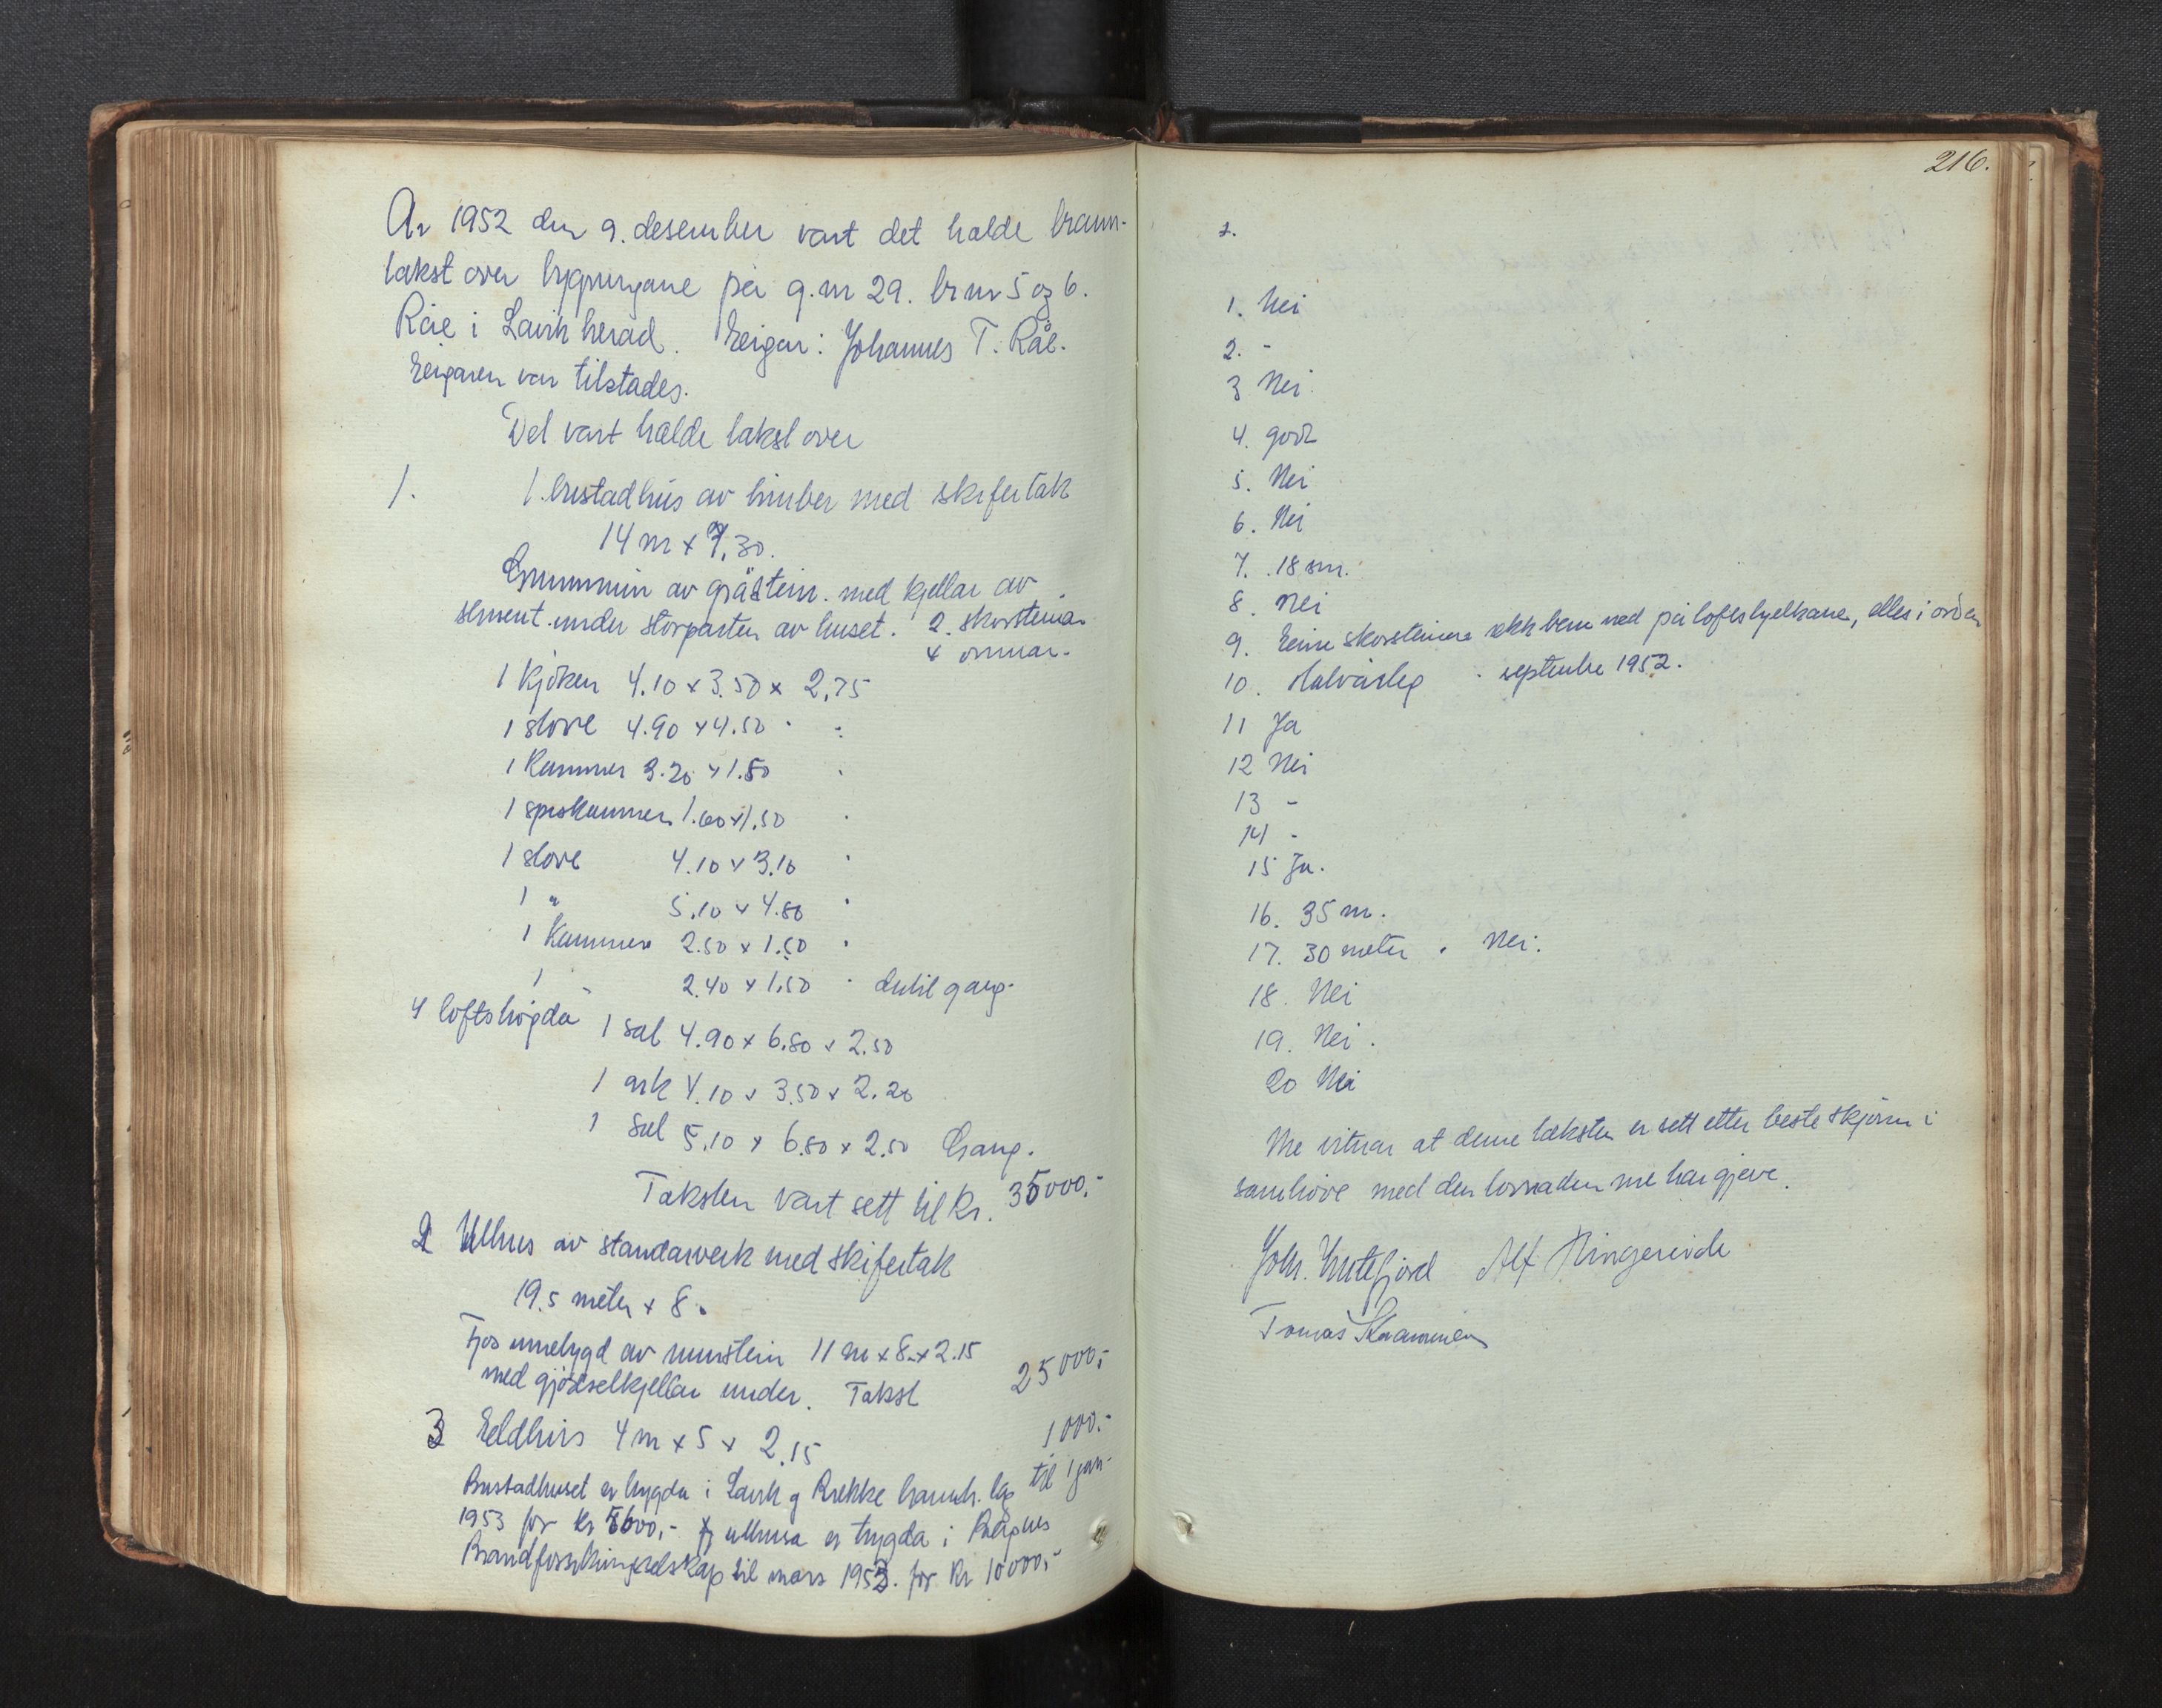 År 1952 den 9. desember vart det halde brann-
takst over bygningane på g.nr 29. br nr 5 og 6.
Råe i Lavik herad. Eeigar: Johannes T. Råe.
Eeigaren var tilstades.
Det vart halde takst over
1. 1. bustadhus av timber med skifertak
14 m x 7,30.
Grunnmur av gråstein. med kjellar av
sement. under storparten av huset. 2. skorsteinar
4 omnar.
1 kjöken 4.10 x 3.50 x 2,75
1 stove 4.90 x 4.50 " "
1 Kammer 3.20 x 1.50 "
1 spiskammer 1.60 x 1.50 "
1 stove 4.10 x 3.10 "
1 " 5.10 x 4.80 "
1 Kammer 2.50 x 1.50 "
1 2.40 x 1.50 " gang.
4 loftshögda 1 sal 4.90 x 6.80 x 2.50
1 ark 4.10 x 3.50 x 2.20
1 Sal 5.10 x 6.80 x 2.50 Gang.
Taksten vart sett til kr. 35000,-
2 Uthus av standarverk med skifertak
19.5 meter x 8.
Fjos innebygd av murstein 11 m x 8 x 2.15
med gjödselkjellar under. Takst 25000,-
3 Eeldhus 4 m x 5 x 2.15 1000.-
Bustadhuset er trygda i Lavik og Brekke brannk. lag til 1 jan-
1953 for kr 5600,- og uthusa er trygda i
Brandforsikringselskap til mars 1953. for kr 10000,-
216.
2.
1. Nei
2. -
3 Nei
4. god
5. Nei
6. Nei
7. 18 sm.
8. Nei
9. Eeine skorsteinen rekk berre ned på loftsbjelkane, elles i orden
10. Halvårleg. septembe 1952.
11 Ja
12 Nei
13 -
14 -
15 Ja.
16. 35 m.
17. 30 meter. Nei.
18. Nei
19. Nei.
20 Nei
Me vitnar at denne taksten er sett etter beste skjönn i
samhöve med den lovnaden me har gjeve.
Joh. Alf Ringereide
Tomas